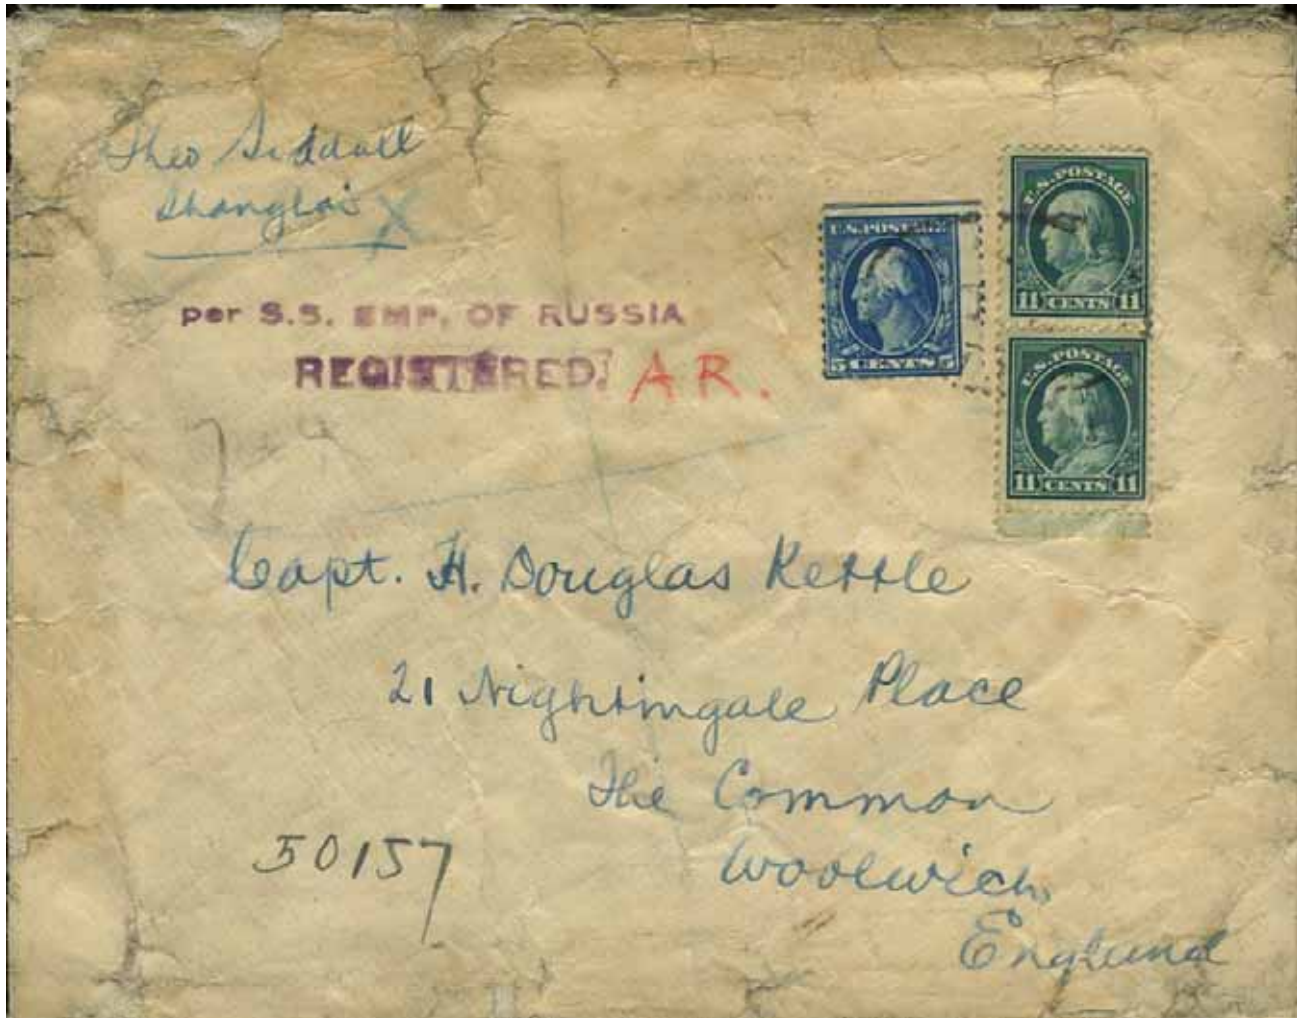 Theo Siddall
Shanghai X
per S.S. EMP. OF RUSSIA
REGISTERED. AR.
U.S. POSTAGE
5 CENTS 5
U.S. POSTAGE
11 CENTS 11
U.S. POSTAGE
11 CENTS 11
Capt. H. Douglas Kettle
21 Nightingale Place
The Common
Woolwich
England
50157